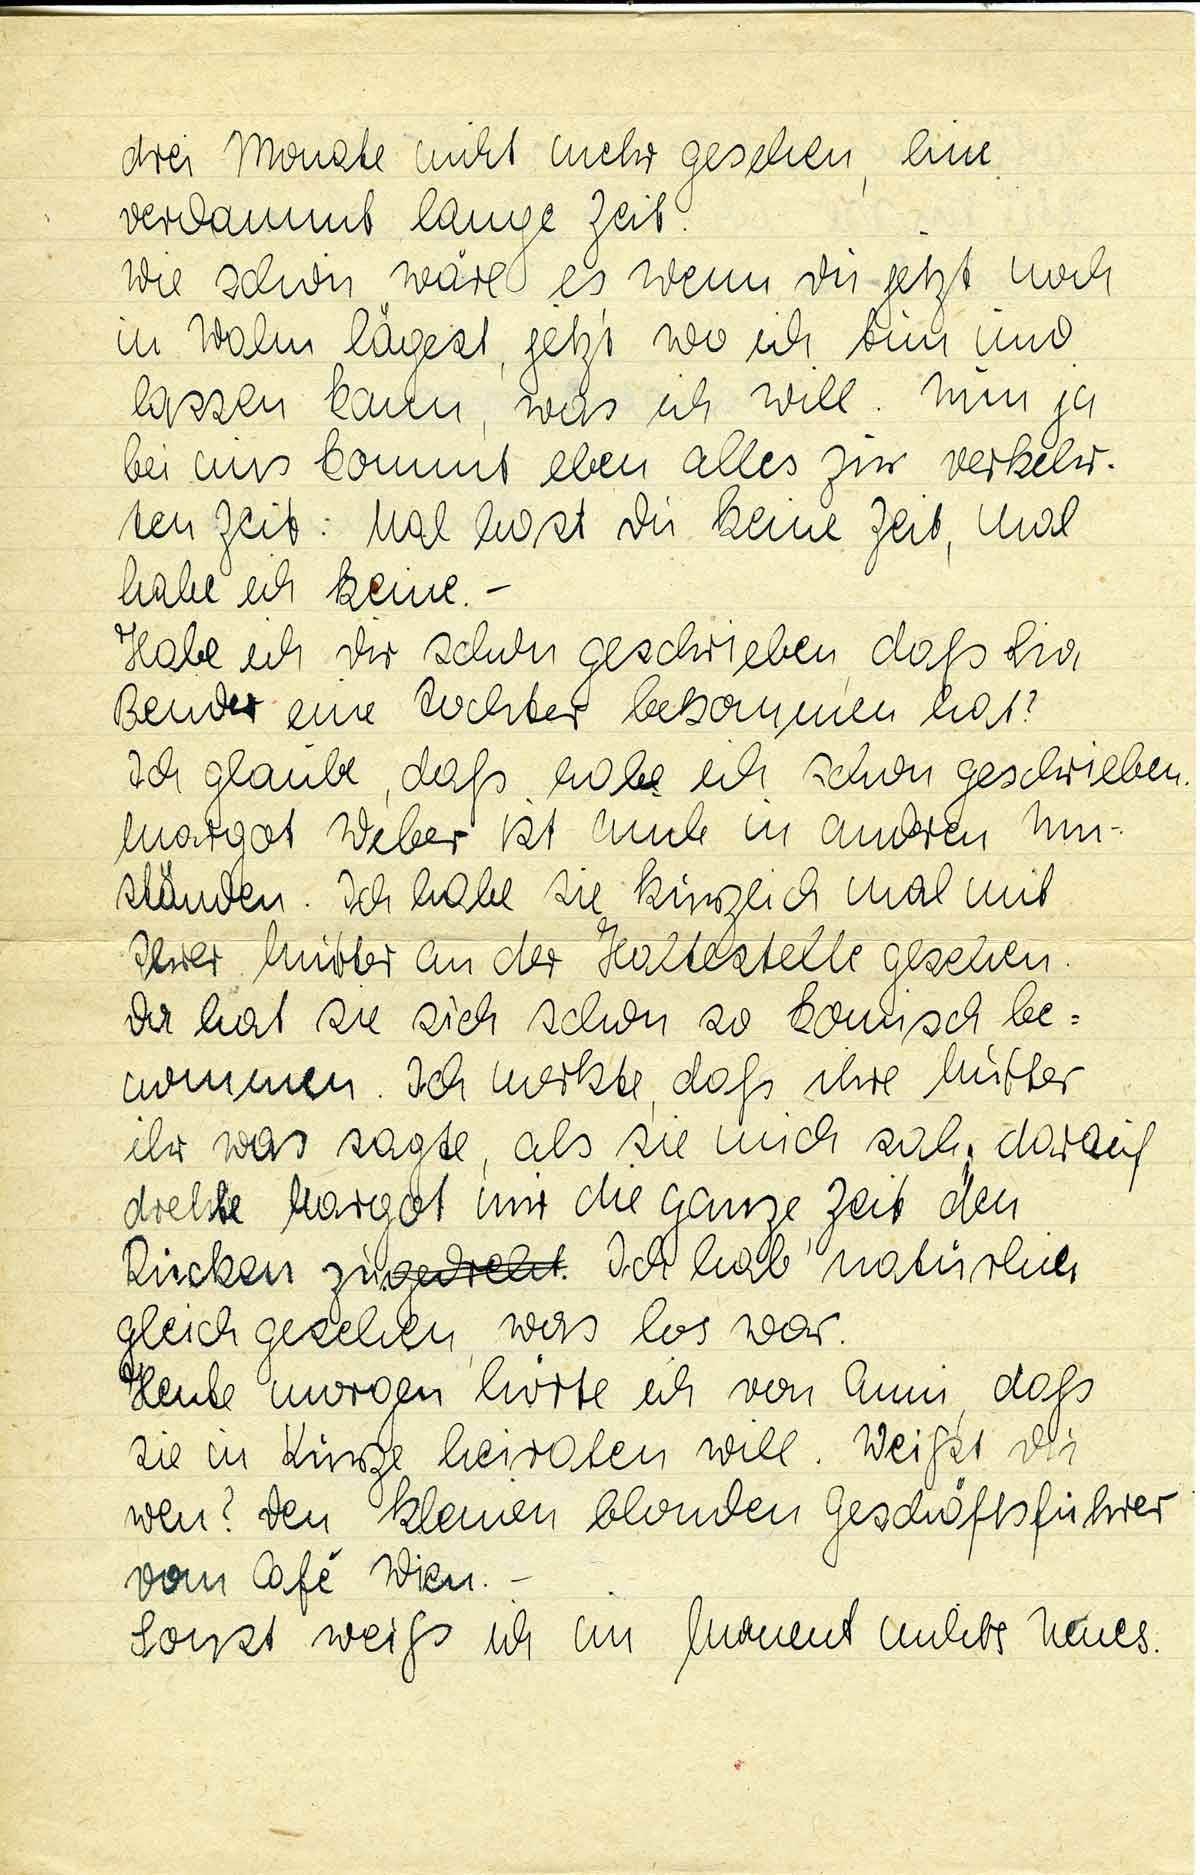 drei Monate nicht mehr gesehen, eine
verdammt lange Zeit.
Wie schön wäre es wenn du jetzt noch
in Wahn lägest, jetzt wo ich tun und
lassen kann, was ich will. Nun ja
bei uns kommt eben alles zur verkehr-
ten Zeit: Mal hast du keine Zeit, mal
habe ich keine. -
Habe ich dir schon geschrieben, daß Lia
Bender eine Tochter bekommen hat?
Ich glaube, daß habe ich schon geschrieben.
Margot Weber ist auch in anderen Um-
ständen. Ich habe sie kürzlich mal mit
Ihrer Mutter an der Haltestelle gesehen.
Da hat sie sich schon so komisch be=
nommen. Ich merkte, daß ihre Mutter
ihr was sagte, als sie mich sah, darauf
drehte Margot mir die ganze Zeit den
Rücken zugedreht. Ich hab' natürlich
gleich gesehen, was los war.
Heute morgen hörte ich von Anni, daß
sie in Kürze heiraten will. Weißt du
wen? Den kleinen blonden Geschäftsführer
vom Café Wien. -
Sonst weiß ich im Moment nichts Neues.